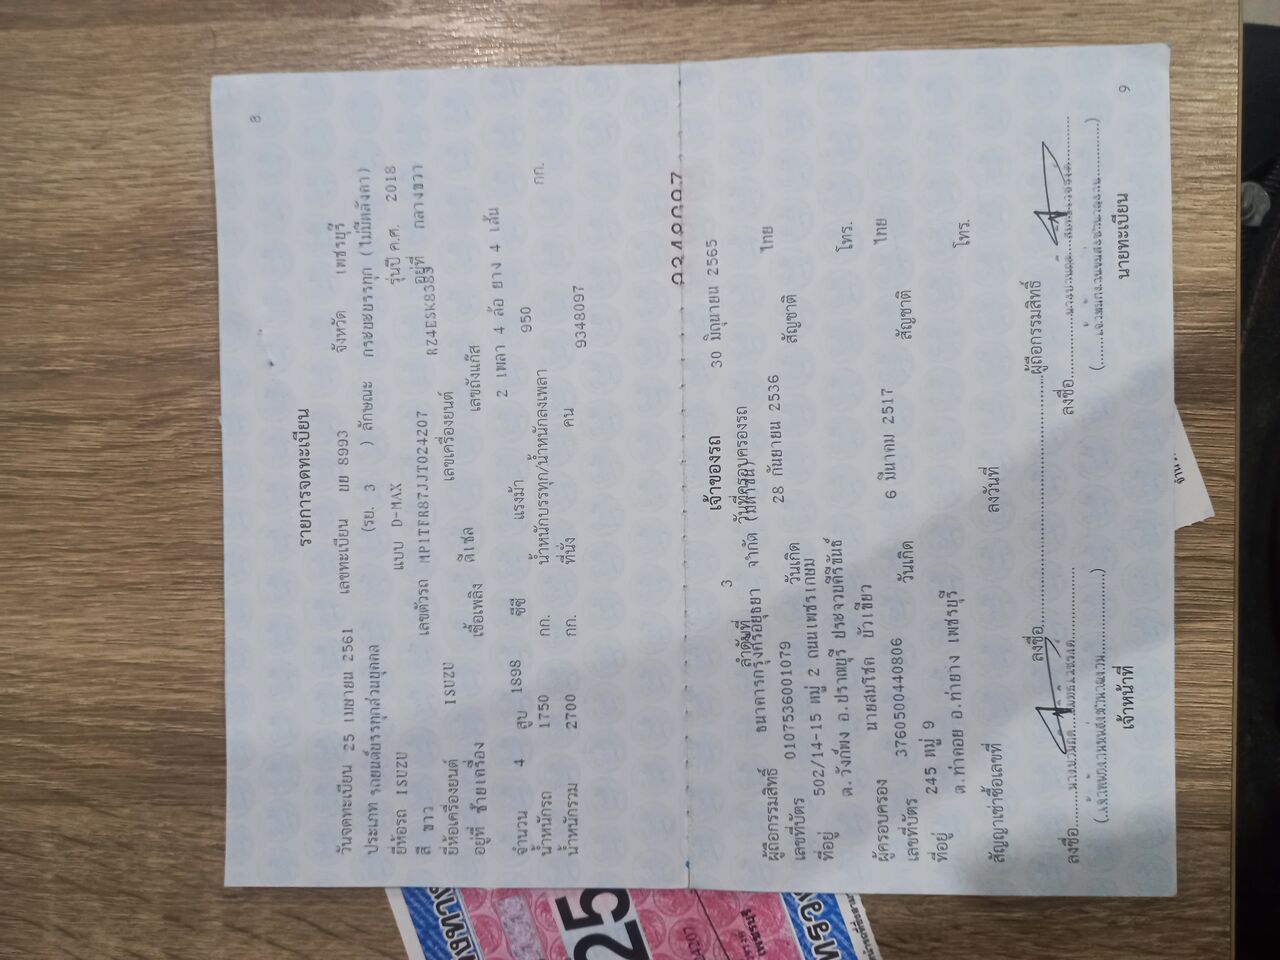 8
รายการจดทะเบียน
วันจดทะเบียน 25 เมษายน 2561 เลขทะเบียน บย 8993 จังหวัด เพชรบุรี
ประเภท รถยนต์บรรทุกส่วนบุคคล (รย. 3 ) ลักษณะ กระบะบรรทุก (ไม่มีหลังคา)
ยี่ห้อรถ ISUZU แบบ D-MAX รุ่นปี ค.ศ. 2018
สี ขาว เลขตัวรถ MP1TFR87JJT024207 อยู่ที่ กลางขวา
ยี่ห้อเครื่องยนต์ ISUZU เลขเครื่องยนต์ RZ4ESK8383
อยู่ที่ ซ้ายเครื่อง เชื้อเพลิง ดีเซล เลขถังแก๊ส
จำนวน 4 สูบ 1898 ซีซี แรงม้า 2 เพลา 4 ล้อ ยาง 4 เส้น
น้ำหนักรถ 1750 กก. น้ำหนักบรรทุก/น้ำหนักลงเพลา 950 กก.
น้ำหนักรวม 2700 กก. ที่นั่ง คน 9348097
เจ้าของรถ
ลำดับที่ 3 วันที่ครอบครองรถ 30 มิถุนายน 2565
ผู้ถือกรรมสิทธิ์ ธนาคารกรุงศรีอยุธยา จำกัด (มหาชน)
เลขที่บัตร 0107536001079 วันเกิด 28 กันยายน 2536 สัญชาติ ไทย
ที่อยู่ 502/14-15 หมู่ 2 ถนนเพชรเกษม
ต.วังก์พง อ.ปราณบุรี ประจวบคีรีขันธ์ โทร.
ผู้ครอบครอง นายสมโชค บัวเขียว
เลขที่บัตร 3760500440806 วันเกิด 6 มีนาคม 2517 สัญชาติ ไทย
ที่อยู่ 245 หมู่ 9
ต.ท่าคอย อ.ท่ายาง เพชรบุรี โทร.
สัญญาเช่าซื้อเลขที่ ลงวันที่
ลงชื่อ ผู้ถือกรรมสิทธิ์
ลงชื่อ ลงชื่อ
เจ้าหน้าที่ นายทะเบียน
9
25